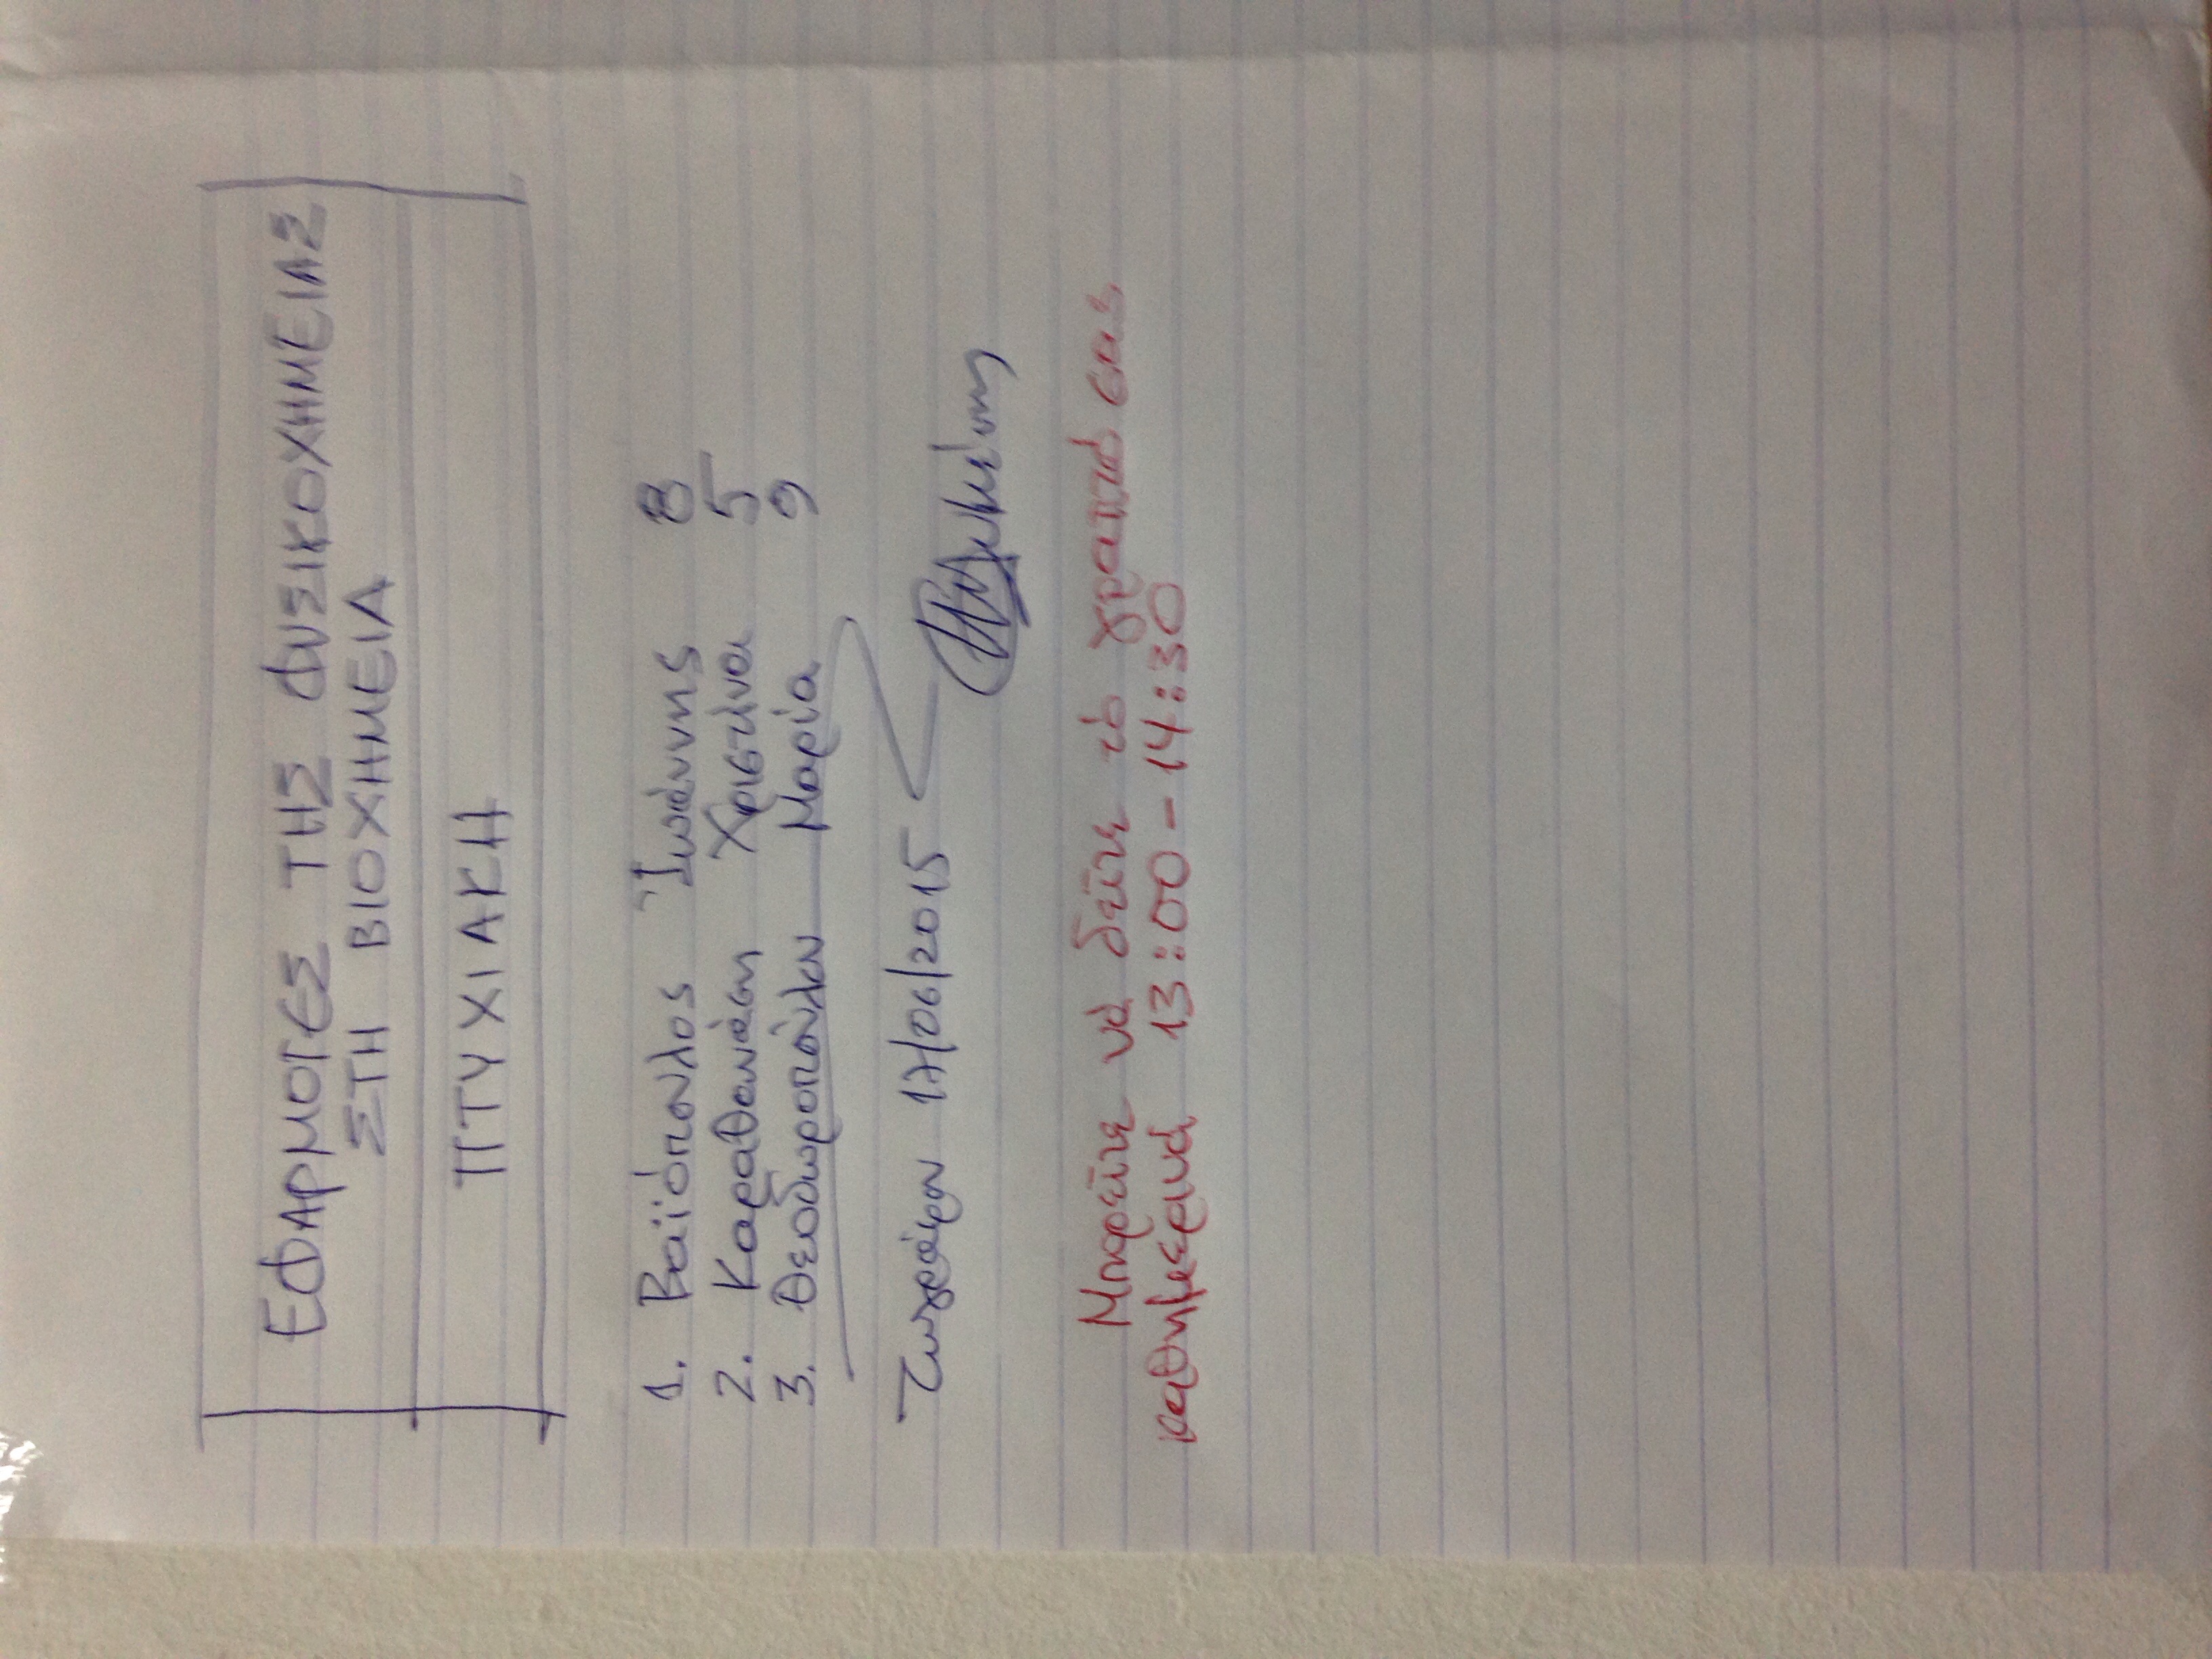 ΕΦΑΡΜΟΓΕΣ ΤΗΣ ΦΥΣΙΚΟΧΗΜΕΙΑΣ
ΣΤΗ ΒΙΟΧΗΜΕΙΑ
ΠΤΥΧΙΑΚΗ
1. Βαϊόπουλος Ἰωάννης 8
2. Καραθανάση Χριστίνα 5
3. Θεοδωροπούλου Μαρία 9
Ζωγράφου 17/06/2015
Μπορεῖτε νά δεῖτε τό γραπτό σας
καθημερινά 13:00-14:30